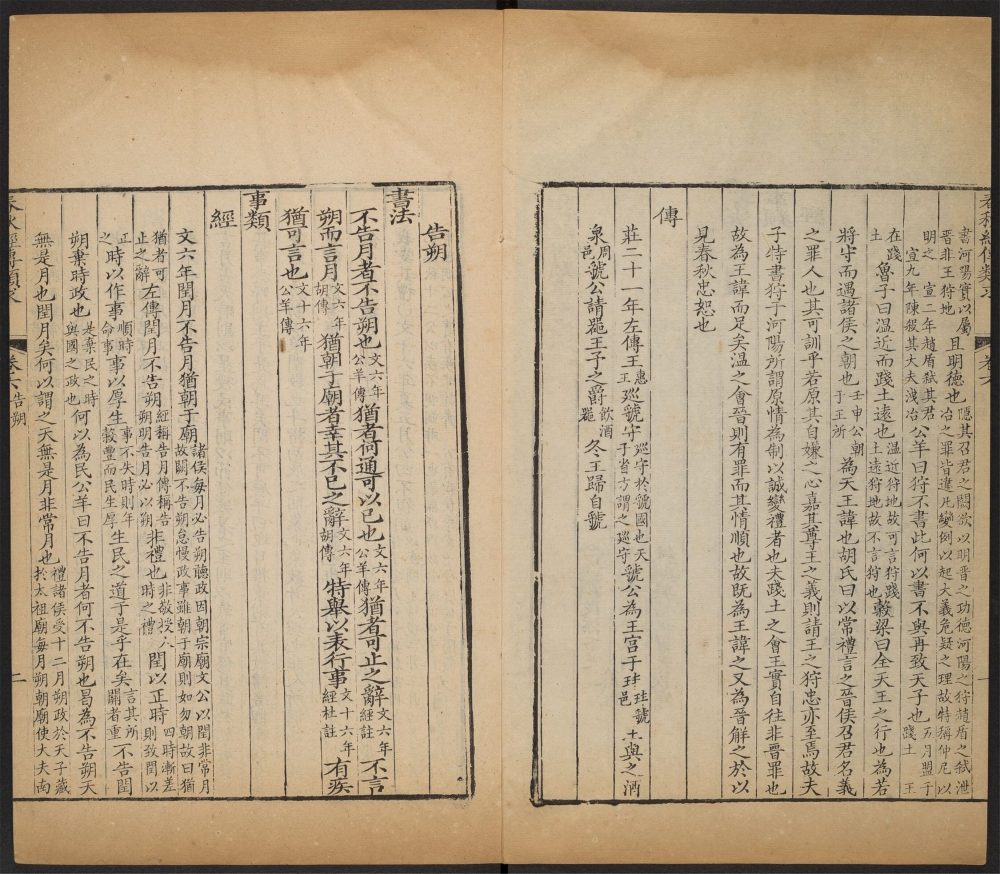 書河陽實以屬
晋非王狩地
且明德也
隱其召君之闕欲以明晋之功德河陽之狩趙盾之弑泄
冶之罪皆違凡變例以起大義危疑之理故特稱仲尼以
明之
宣二年趙盾弑其君
宣九年陳殺其大夫洩冶
公羊曰狩不書此何以書不與再致天子也
五月盟于
踐土 王
在踐
土
魯子曰溫近而踐土遠也
溫近狩地故可言狩踐
土遠狩地故不言狩也
穀梁曰全天王之行也為若
將守而遇諸侯之朝也
壬申公朝
于王所
為天王諱也胡氏曰以常禮言之晉侯召君名義
之罪人也其可訓乎若原其自嫌之心嘉其尊王之義則請王之狩忠亦至焉故夫
子特書狩于河陽所謂原情為制以誠變禮者也夫踐土之會王實自往非晉罪也
故為王諱而足矣溫之會晉則有罪而其情順也故既為王諱之又為晉解之於以
見春秋忠恕也
傳
莊二十一年左傳王
惠
王
巡虢守
巡守於虢國也天
子省方謂之巡守
虢公為王宮于玤
玤虢
邑
王與之酒
泉
周
邑
虢公請器王予之爵
飲酒
器
冬王歸自虢
告朔
書法
不告月者不告朔也
文六年
公羊傳
猶者何通可以已也
文六年
公羊傳
猶者可止之辭
文六年
經註
不言
朔而言月
文六年
胡傳
猶朝于廟者幸其不已之辭
文六年
胡傳
特舉以表行事
文十六年
經杜註
有疾
猶可言也
文十六年
公羊傳
事類
經
文六年閏月不告月猶朝于廟
諸侯每月必告朔聽政因朝宗廟文公以閏非常月
故闕不告朔怠慢政事雖朝于廟則如勿朝故曰猶
猶者可
止之辭
左傳閏月不告朔
經稱告月傳稱告
朔明告月必以朔
非禮也
非敬授人
時之禮
閏以正時
四時漸差
則致閏以
正之
時以作事
順時
命事
事以厚生
事不失時則年
穀豐而民生厚
生民之道于是乎在矣
言其所
關者重
不告閏
朔棄時政也
是棄民之時
與國之政也
何以為民公羊曰不告月者何不告朔也曷為不告朔天
無是月也閏月矣何以謂之天無是月非常月也
禮諸侯受十二月朔政於天子藏
於太祖廟每月朔朝廟使大夫南
卷六告朔
二